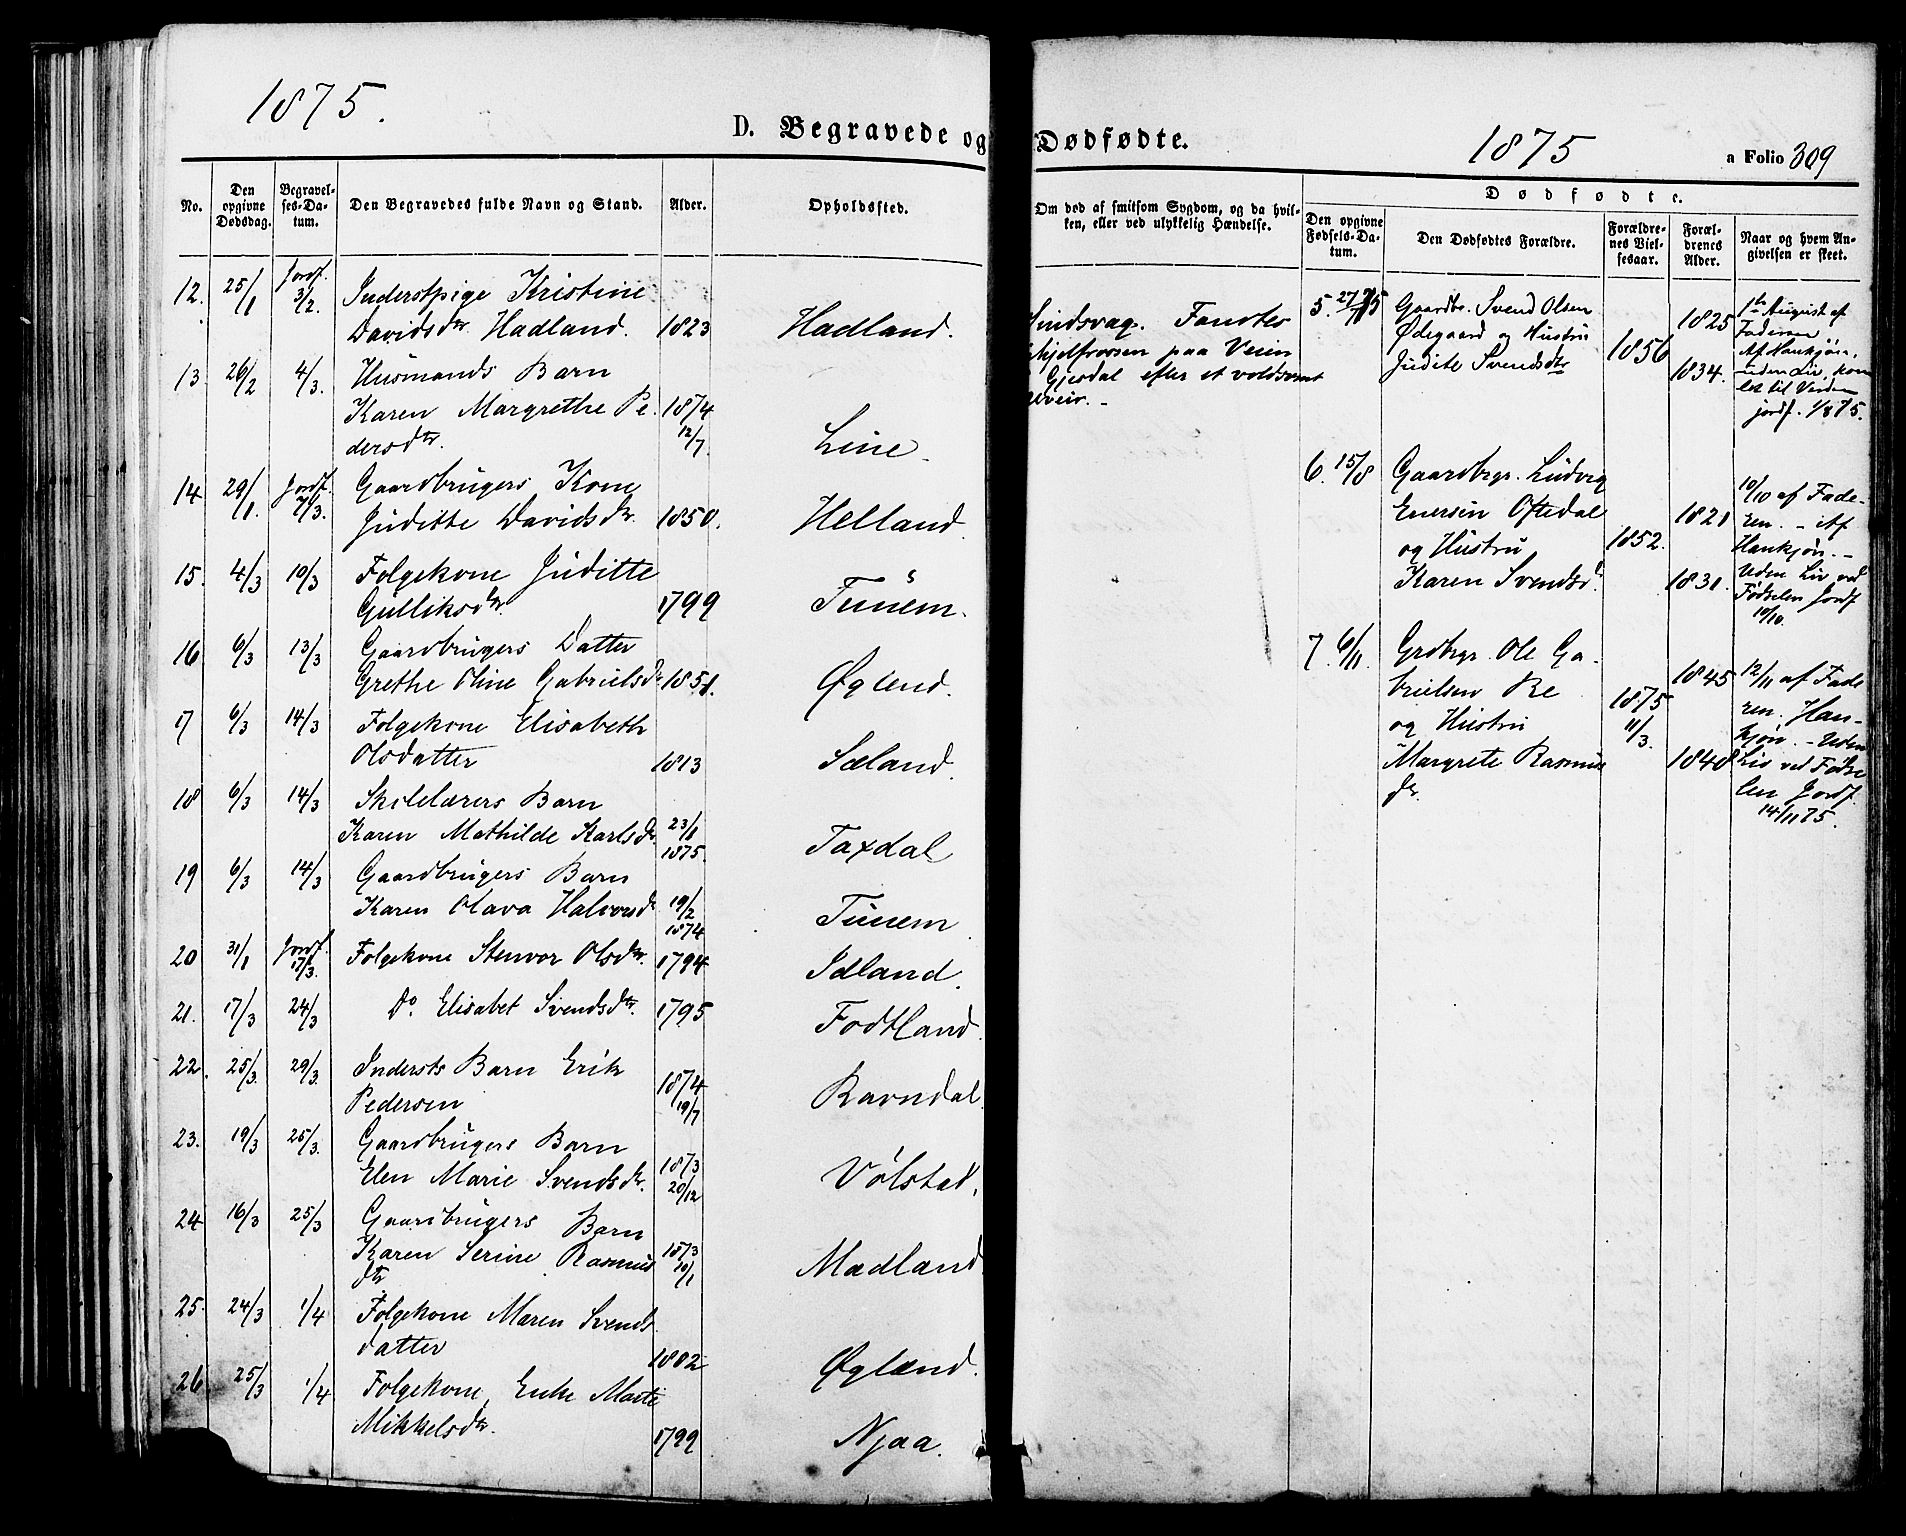 1875.
D. Begravede og Dødfødte.
1875
a Folio 309
No.
Den opgivne Dødsdag.
Begravelses-Datum.
Den Begravedes fulde Navn og Stand.
Alder.
Opholdssted.
Om død af smitsom Sygdom, og da hvilken, eller ved ulykkelig Hændelse.
Dødfødte.
Den opgivne Fødsels-Datum.
Den Dødfødtes Forældre.
Forældrenes Vielsesaar.
Forældrenes Alder.
Naar og hvem Angivelsen er skeet.
12. 25/1 Jordf. 3/2. Inderstpige Kristine
Davidsdtr Hadland. 1823 Hadland.
13 26/2 4/3. Husmands Barn
Karen Margrethe Pe- 1874
dersdtr. 12/7. Line
14 29/1. Jordf. 7/3. Gaardbrugers Kone
Juditte Davidsdr. 1850. Helland.
15. 4/3 10/3 Folgekone Juditte
Gulliksdtr. 1799 Tunem.
16 6/3 13/3 Gaardbrugers Datter
Grethe Oline Gabrielsdr 1851. Øglend.
17 6/3 14/3 Folgekone Elisabeth
Olsdatter 1813 Sæland.
18 6/3 14/3 Skolelærers Barn
Karen Mathilde Karlsdr 23/1 1875. Taxdal
19 6/3 14/3 Gaardbrugers Barn
Karen Olava Halvorsdr 19/2 1874 Tunem
20 31/1 Jordf. 17/3. Folgekone Stenvor Olsdtr. 1794 Idland.
21. 17/3 24/3 Do. Elisabet Svendsdtr. 1795 Fodtland.
22. 25/3. 29/3. Indersts Barn Erik
Pedersen 1874 19/7 Ravndal.
23. 19/3 25/3. Gaardbrugers Barn
Elen Marie Svendsdtr. 1873 20/12 Vølstad.
24 16/3 25/3 Gaardbrugers Barn
Karen Serine Rasmus
dtr 1873 10/1 Madland
25. 24/3 1/4 Folgekone Maren Svends
datter 1802 Øglænd.
26 25/3 1/4 Folgekone, Marte
Mikkelsdtr. 1799 Njaa.
Sindsvag. Fandtes
ihjelfrossen paa Veien
Gjesdal efter et voldsomt
uveir. -
5. 27/7 75 Gaardbr. Svend Olsen
Ødegaard og Hustru
Judite Svendsdtr
1856
1825
1834.
1ste August af
Faderen
Af Hankjøn,
uden Liv, kom
let til Verden
jordf. 1/8 75.
6. 15/8 Gaardbrgr. Ludvig
Enersen Oftedal
og Hustru
Karen Svendsd
1852.
1821
1831.
10/10 af Fade-
ren. - Af
Hankjøn. -
Uden Liv ved
Fødselen Jordf
10/10.
7. 6/11. Grdbrgr. Ole Ga-
brielsen Re
og Hustru
Margrete Rasmus
dr.
1875
11/3.
1845
1848
12/11 af Fade
ren. Han-
kjøn. - Uden
Liv ved Fødse
len Jordf
14/11 75.